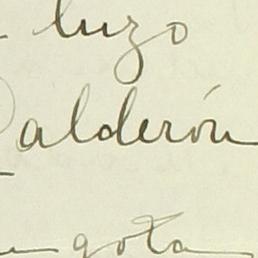 luzo
Calderón
gota